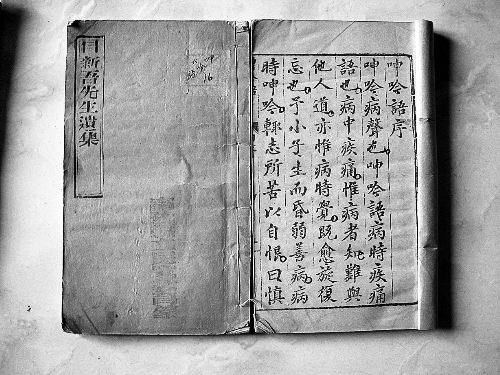 呻吟語序
呻吟病聲也呻吟語病時疾痛
語也病中疾痛惟病者知難與
他人道亦惟病時覺既愈旋復
忘也予小子生而昏弱善病病
時呻吟輒志所苦以自恨曰慎
呂新吾先生遺集
16